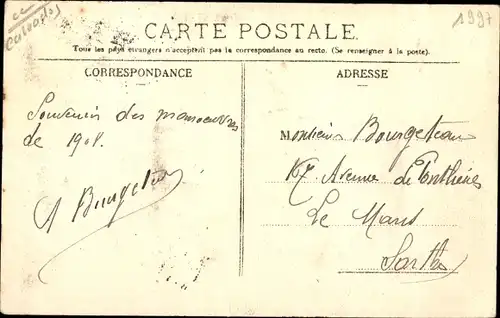 Calvados
1997
CARTE POSTALE.
Tous les pays étrangers n'acceptent pas la correspondance au recto. (Se renseigner à la poste).
CORRESPONDANCE
Souvenir des manoeuvres
de 1908.
ADRESSE
Monsieur Bourgeteau
Avenue de
Le Mans
Sarthe